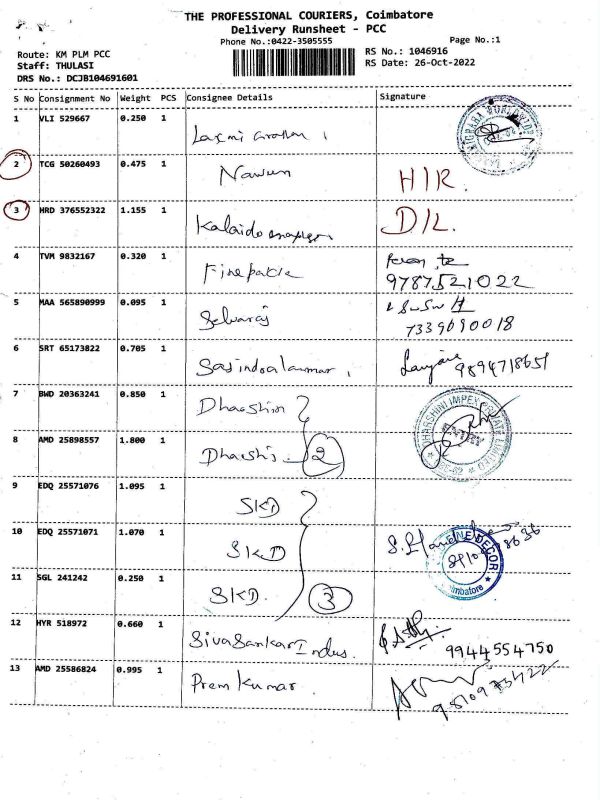 THE PROFESSIONAL COURIERS, Coimbatore
Delivery Runsheet - PCC
Phone No.:0422-3505555
Page No.:1
Route: KM PLM PCC
RS No.: 1046916
Staff: THULASI
RS Date: 26-Oct-2022
DRS No.: DCJB104691601
S No Consignment No Weight PCS Consignee Details Signature
1 VLI 529667 0.250 1 Laxmi
2 TCG 50260493 0.475 1 Naveen H/R.
3 HRD 376552322 1.155 1 D/L.
4 TVM 9832167 0.320 1
9787521022
5 MAA 565890999 0.095 1 Selvaraj
7339690018
6 SRT 65173822 0.705 1 9894718651
7 BWD 20363241 0.850 1 Dharshini DHARSHINI IMPEX PRIVATE LIMITED
8 AMD 25898557 1.800 1 Dharshi 2
9 EDQ 25571076 1.095 1 SKD
10 EDQ 25571071 1.070 1 SKD DECOR
11 SGL 241242 0.250 1 SKD. 3
12 HYR 518972 0.660 1 Sivasankar Indus. 9944554750
13 AMD 25586824 0.995 1 Prem Kumar.